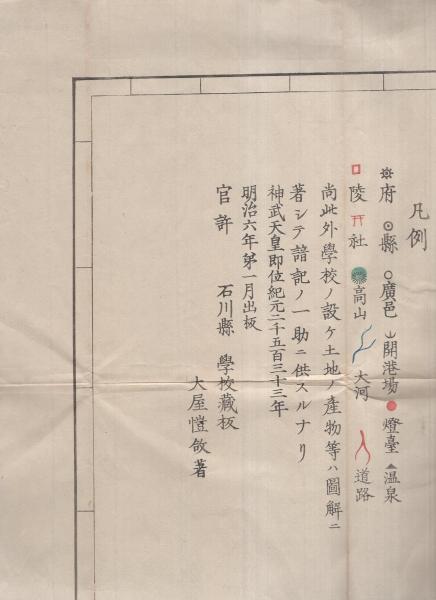 凡例
府 縣 廣邑 開港場 燈臺 温泉
陵 社 高山 大河 道路
尚此外學校ノ設ケ土地ノ產物等ハ圖解ニ
著シテ諳記ノ一助ニ供スルナリ
神武天皇即位紀元二千五百三十三年
明治六年第一月出板
官許 石川縣 學校藏板
大屋愷㪘著